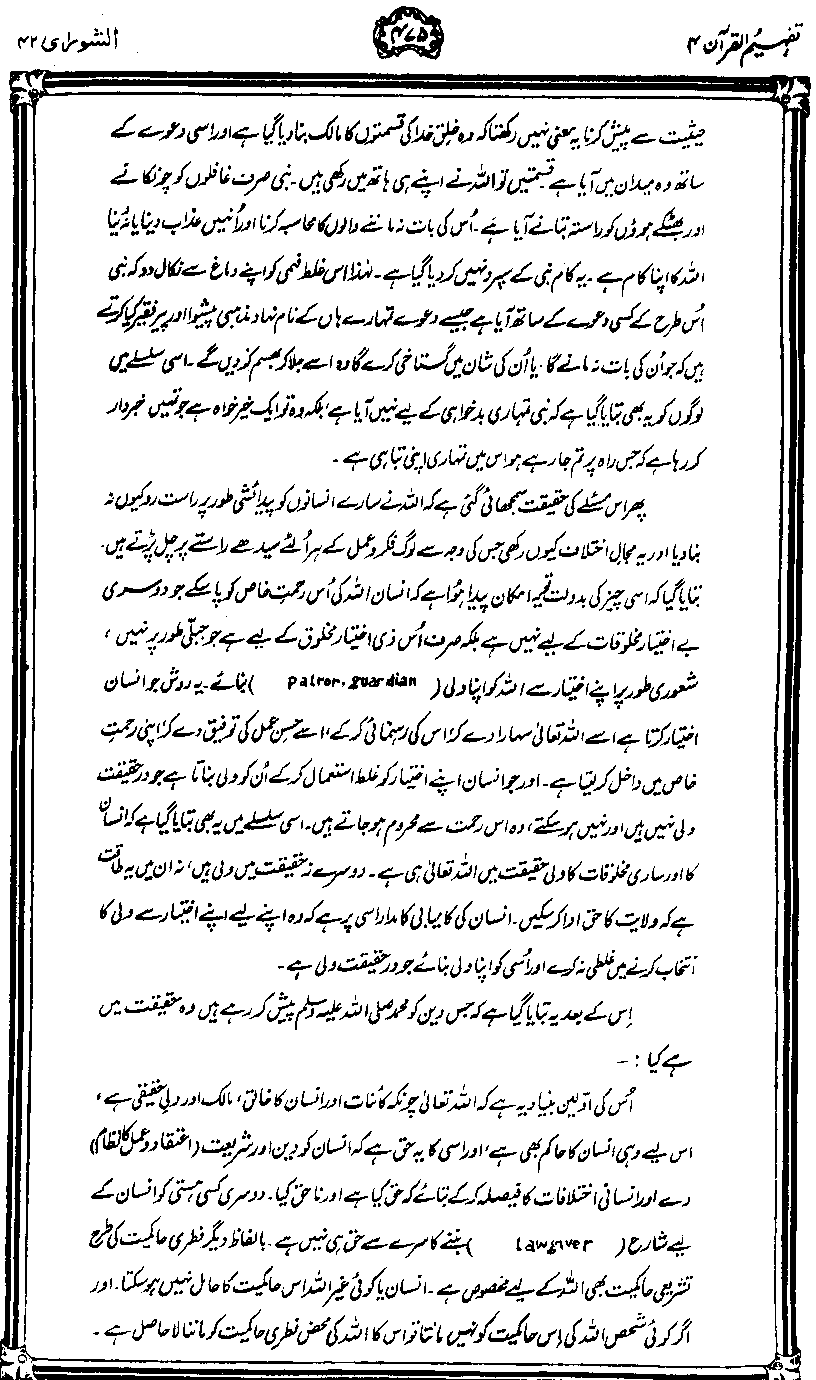 تفہیم القرآن ۴
۴۷۵
الشورٰی ۴۲
حیثیت سے پیش کرنا یہ معنی نہیں رکھتا کہ وہ خلقِ خدا کی قسمتوں کا مالک بنا دیا گیا ہے اور اسی دعوے کے
ساتھ وہ میدان میں آیا ہے۔ قسمتیں تو اللہ نے اپنے ہی ہاتھ میں رکھی ہیں۔ نبی صرف غافلوں کو چونکانے
اور بھٹکے ہوؤں کو راستہ بتانے آیا ہے۔ اُس کی بات نہ ماننے والوں کا محاسبہ کرنا اور اُنہیں عذاب دینا یا نہ دینا
اللہ کا اپنا کام ہے۔ یہ کام نبی کے سپرد نہیں کر دیا گیا ہے۔ لہٰذا اس غلط فہمی کو اپنے دماغ سے نکال دو کہ نبی
اُس طرح کے کسی دعوے کے ساتھ آیا ہے جیسے دعوے تمہارے ہاں کے نام نہاد مذہبی پیشوا اور پیر فقیر کیا کرتے
ہیں کہ جو اُن کی بات نہ مانے گا، یا اُن کی شان میں گستاخی کرے گا وہ اسے جلا کر بھسم کر دیں گے۔ اسی سلسلے میں
لوگوں کو یہ بھی بتایا گیا ہے کہ نبی تمہاری بدخواہی کے لیے نہیں آیا ہے، بلکہ وہ تو ایک خیر خواہ ہے جو تمہیں خبردار
کر رہا ہے کہ جس راہ پر تم جا رہے ہو اس میں تمہاری اپنی تباہی ہے۔
پھر اس مسئلے کی حقیقت سمجھائی گئی ہے کہ اللہ نے سارے انسانوں کو پیدائشی طور پر راست رو کیوں نہ
بنا دیا اور یہ مجالِ اختلاف کیوں رکھی جس کی وجہ سے لوگ فکر و عمل کے ہر اُلٹے سیدھے راستے پر چل پڑتے ہیں۔
بتایا گیا کہ اسی چیز کی بدولت تو یہ امکان پیدا ہُوا ہے کہ انسان اللہ کی اُس رحمتِ خاص کو پا سکے جو دوسری
بے اختیار مخلوقات کے لیے نہیں ہے بلکہ صرف اُس ذی اختیار مخلوق کے لیے ہے جو جبلّی طور پر نہیں،
شعوری طور پر اپنے اختیار سے اللہ کو اپنا ولی (patron, guardian) بنائے۔ یہ روش جو انسان
اختیار کرتا ہے اسے اللہ تعالیٰ سہارا دے کر، اس کی رہنمائی کر کے، اسے حسنِ عمل کی توفیق دے کر، اپنی رحمتِ
خاص میں داخل کر لیتا ہے۔ اور جو انسان اپنے اختیار کو غلط استعمال کر کے اُن کو ولی بناتا ہے جو درحقیقت
ولی نہیں ہیں اور نہیں ہو سکتے، وہ اس رحمت سے محروم ہو جاتے ہیں۔ اسی سلسلے میں یہ بھی بتایا گیا ہے کہ انسان
کا اور ساری مخلوقات کا ولی حقیقت میں اللہ تعالیٰ ہی ہے۔ دوسرے نہ حقیقت میں ولی ہیں، نہ ان میں یہ طاقت
ہے کہ ولایت کا حق ادا کر سکیں۔ انسان کی کامیابی کا مدار اسی پر ہے کہ وہ اپنے لیے اپنے اختیار سے ولی کا
انتخاب کرنے میں غلطی نہ کرے اور اُسی کو اپنا ولی بنائے جو درحقیقت ولی ہے۔
اِس کے بعد یہ بتایا گیا ہے کہ جس دین کو محمد صلی اللہ علیہ وسلم پیش کر رہے ہیں وہ حقیقت میں
ہے کیا :-
اُس کی اوّلین بنیاد یہ ہے کہ اللہ تعالیٰ چونکہ کائنات اور انسان کا خالق، مالک اور ولیِ حقیقی ہے،
اس لیے وہی انسان کا حاکم بھی ہے، اور اسی کا یہ حق ہے کہ انسان کو دین اور شریعت (اعتقاد و عمل کا نظام)
دے اور انسانی اختلافات کا فیصلہ کر کے بتائے کہ حق کیا ہے اور ناحق کیا۔ دوسری کسی ہستی کو انسان کے
لیے شارع (lawgiver) بننے کا سرے سے حق ہی نہیں ہے۔ بالفاظ دیگر فطری حاکمیت کی طرح
تشریعی حاکمیت بھی اللہ کے لیے مخصوص ہے۔ انسان یا کوئی غیر اللہ اس حاکمیت کا حامل نہیں ہو سکتا۔ اور
اگر کوئی شخص اللہ کی اِس حاکمیت کو نہیں مانتا تو اس کا اللہ کی محض فطری حاکمیت کو ماننا لاحاصل ہے۔